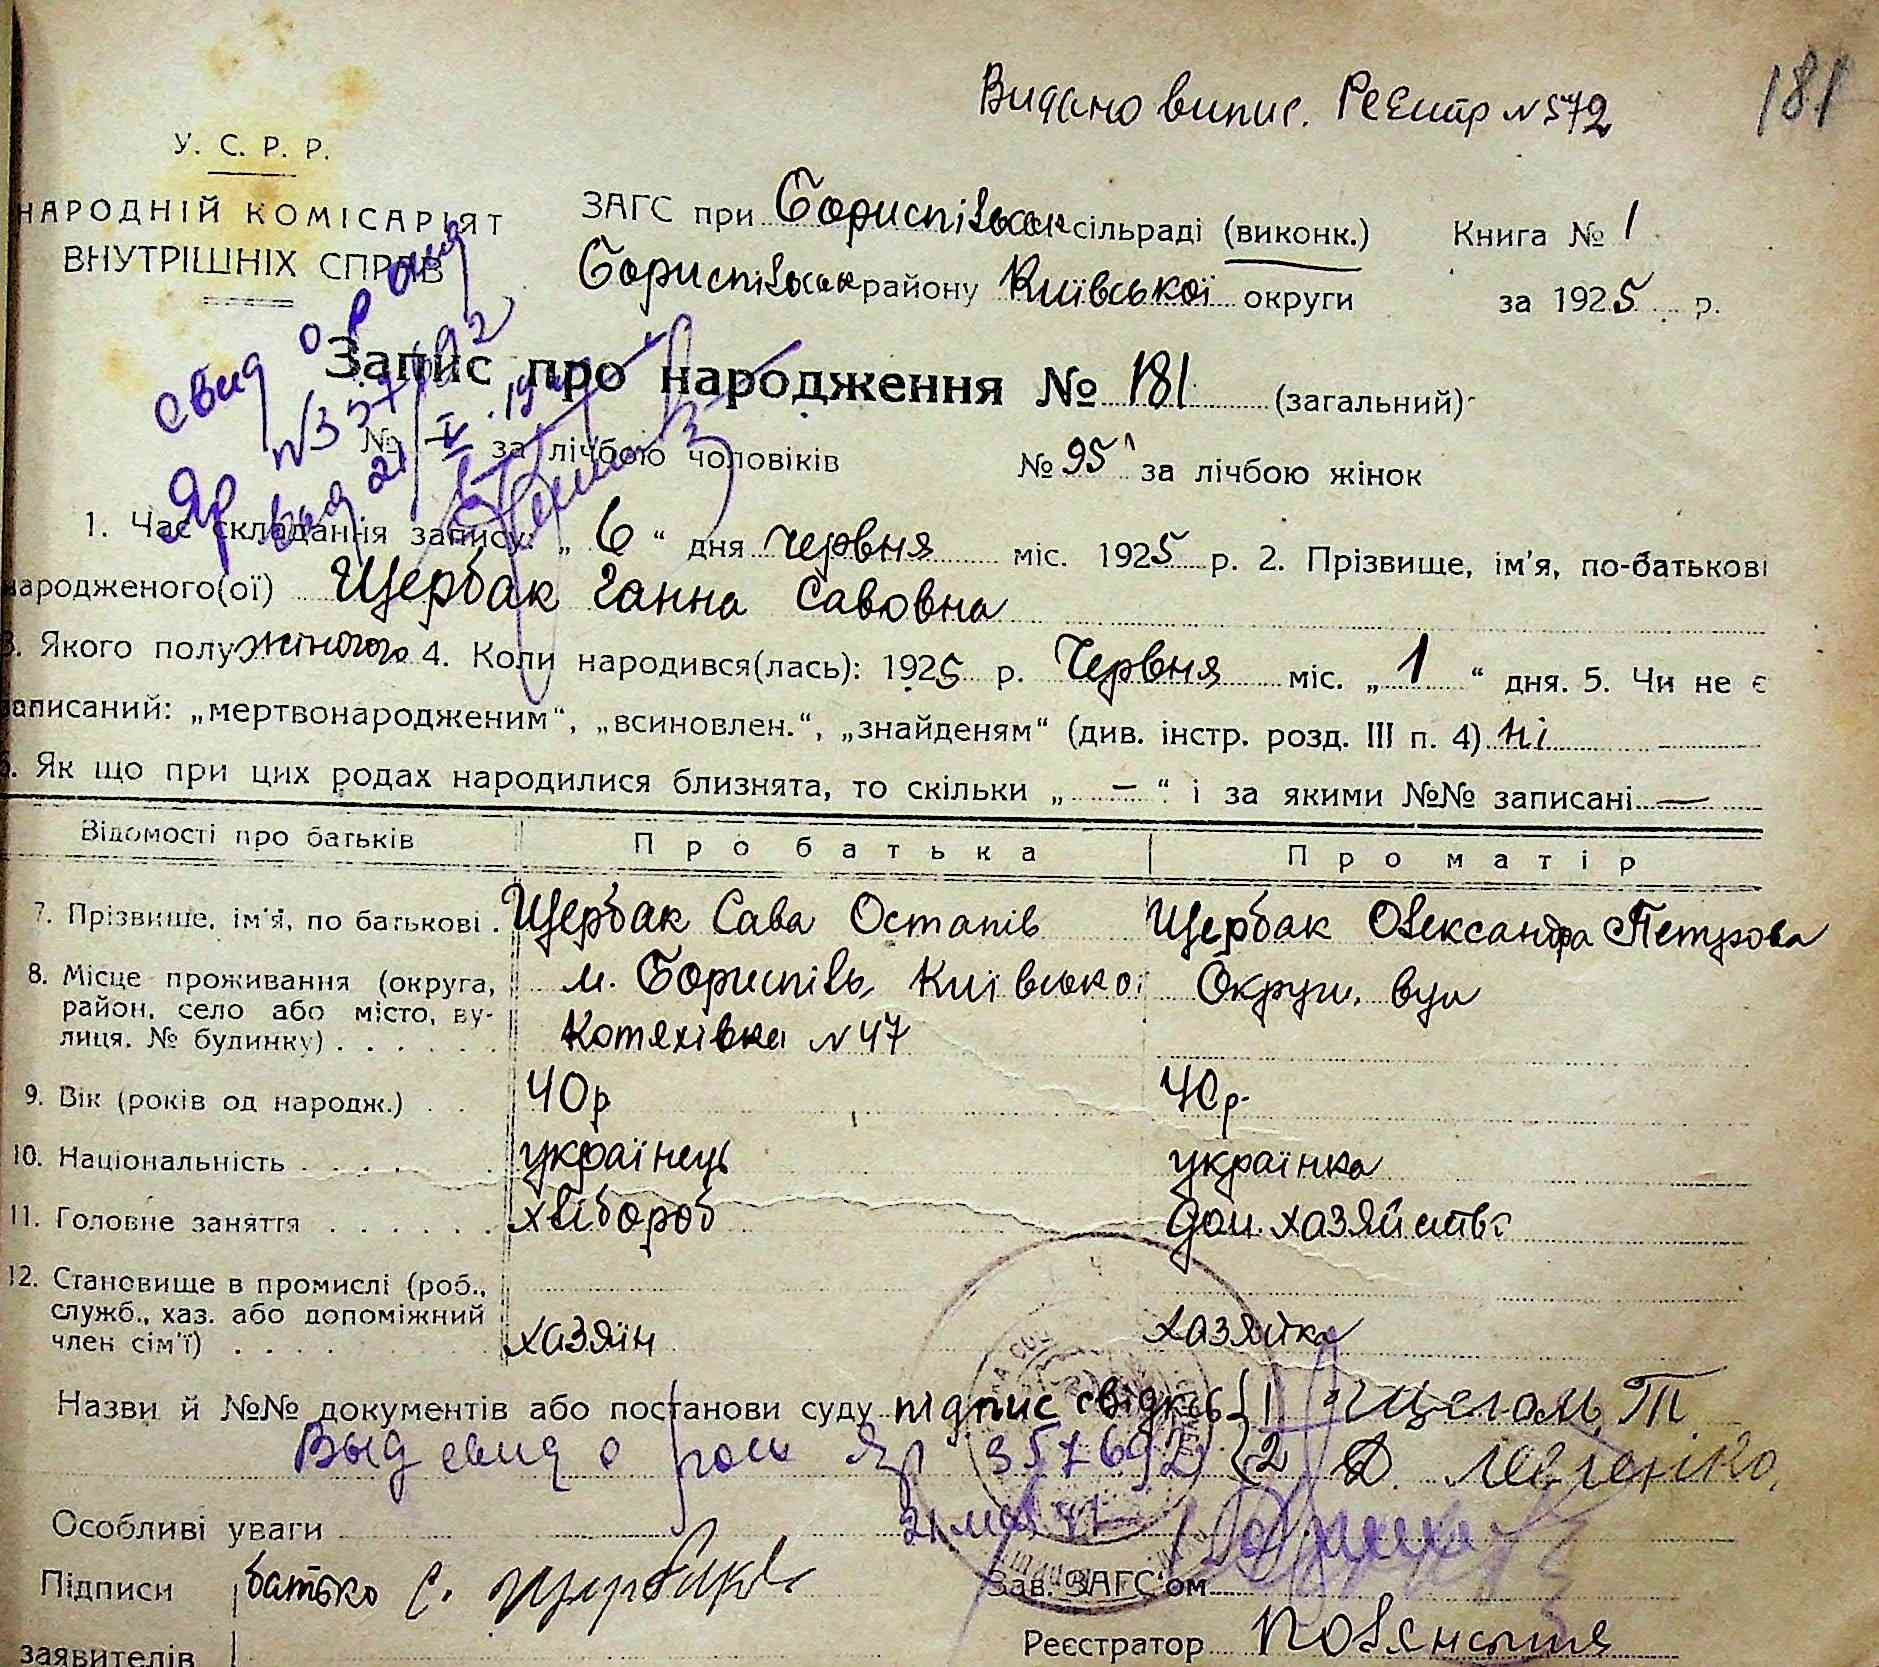 Видано випис. Реєстр №572
181
У. С. Р. Р.
НАРОДНІЙ КОМІСАРІЯТ
ВНУТРІШНІХ СПРАВ
ЗАГС при Бориспільськ сільраді (виконк.) Книга № 1
Бориспільськ району Київської округи за 1925 р.
Запис про народження № 181 (загальний)
№ за лічбою чоловіків № 95 за лічбою жінок
1. Час складання запису: „ 6 “ дня червня міс. 1925 р. 2. Прізвище, ім'я, по-батькові
народженого(ої) Щербак Ганна Савовна
3. Якого полу жіночого 4. Коли народився(лась): 1925 р. Червня міс. „ 1 “ дня. 5. Чи не є
записаний: „мертвонародженим“, „всиновлен.“, „знайденям“ (див. інстр. розд. III п. 4) ні
6. Як що при цих родах народилися близнята, то скільки „ — “ і за якими №№ записані —
Відомості про батьків Про батька Про матір
7. Прізвище, ім'я, по батькові . Щербак Сава Остапів Щербак Олександра Петрова
8. Місце проживання (округа, район, село або місто, вулиця, № будинку) . . . . . . м. Бориспіль, Київської Округи, вул
Котляхівка №47
9. Вік (років од народж.) . . 40 р 40 р.
10. Національність . . . . . українець українка
11. Головне заняття . . . . . . хлібороб дом. хазяйство
12. Становище в промислі (роб., служб., хаз. або допоміжний член сім'ї) . . . . хазяїн хазяйка
Назви й №№ документів або постанови суду підпис свідків { 1 Щеголь Т
Выд свид о рож Яр 357692 { 2 Д.
21 мая
Особливі уваги
Підписи батько С. Щербак
Зав. ЗАГС'ом
заявителів
Реєстратор